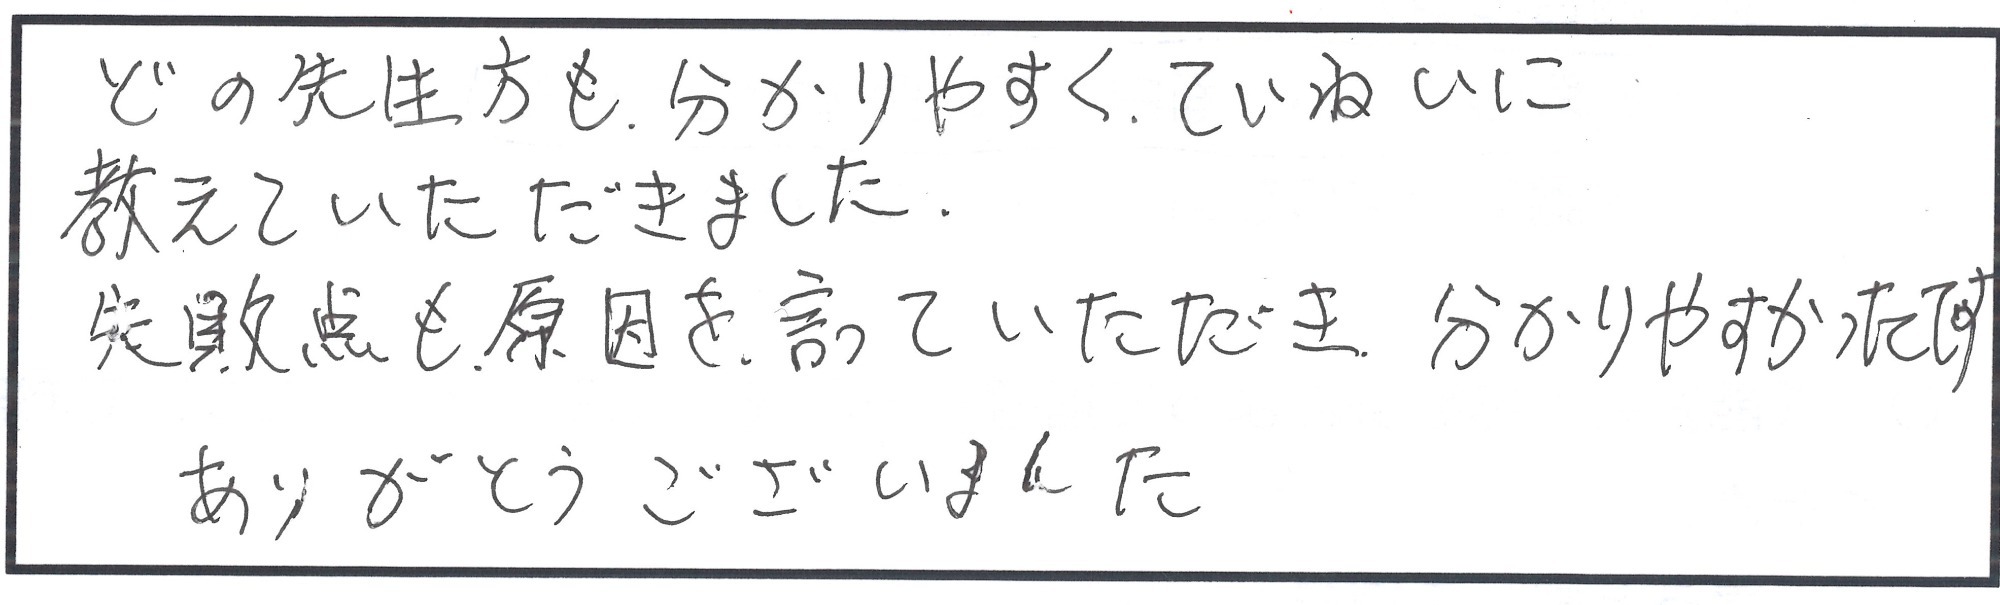 どの先生方も、分かりやすく、ていねいに
教えていただきました。
失敗点も、原因を、言っていただき、分かりやすかったです
ありがとうございました